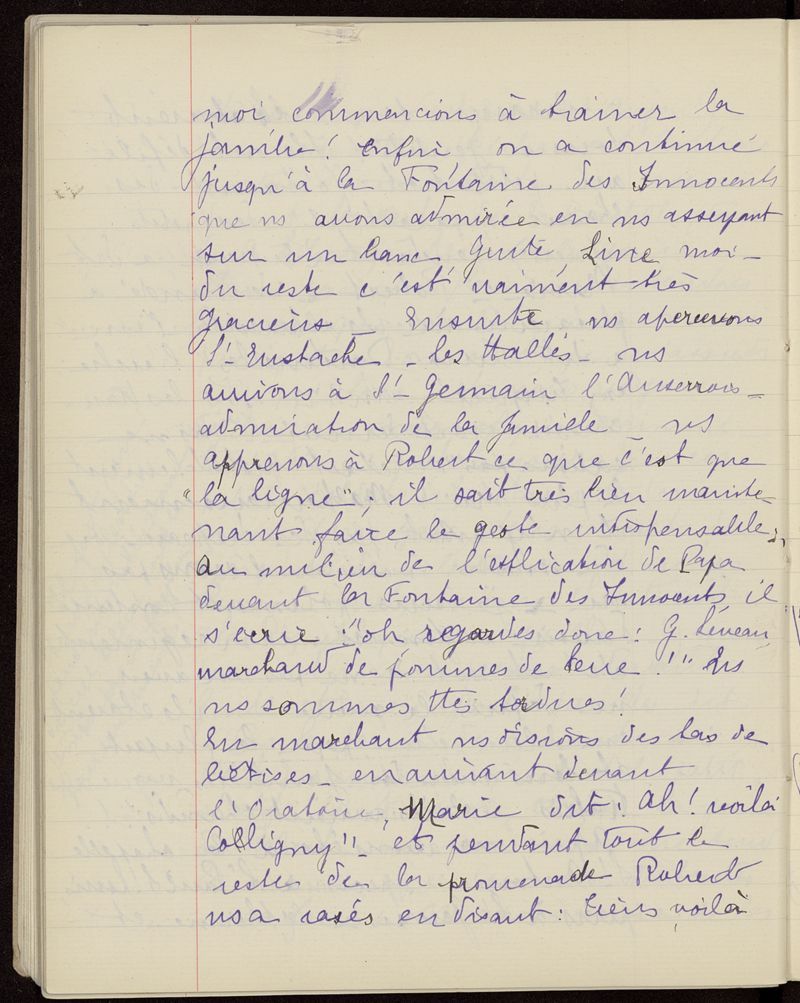 moi commencions à trainer la
famille ! enfin on a continué
jusqu'à la Fontaine des Innocents
que ns avons admirée en ns asseyant
sur un banc Guite Line moi -
du reste c'est vraiment très
gracieux - Ensuite ns apercevons
St Eustache - les Halles - ns
arrivons à St Germain l'Auxerrois -
admiration de la famille ns
apprenons à Robert ce que c'est que
"la ligne" ; il sait très bien mainte-
nant faire le geste indispensable ;
au milieu de l'explication de Papa
devant la Fontaine des Innocents, il
s'écrie : "oh regardes donc : G. Leveau
marchand de pommes de terre !" Ens
ns sommes ttes tordues !
En marchant ns disions des tas de
bêtises - en arrivant devant
l'Oratoire, Marie dit : Ah ! voilà
Colligny" - et pendant tout le
reste de la promenade Robert
ns a rasés en disant : Tiens voilà